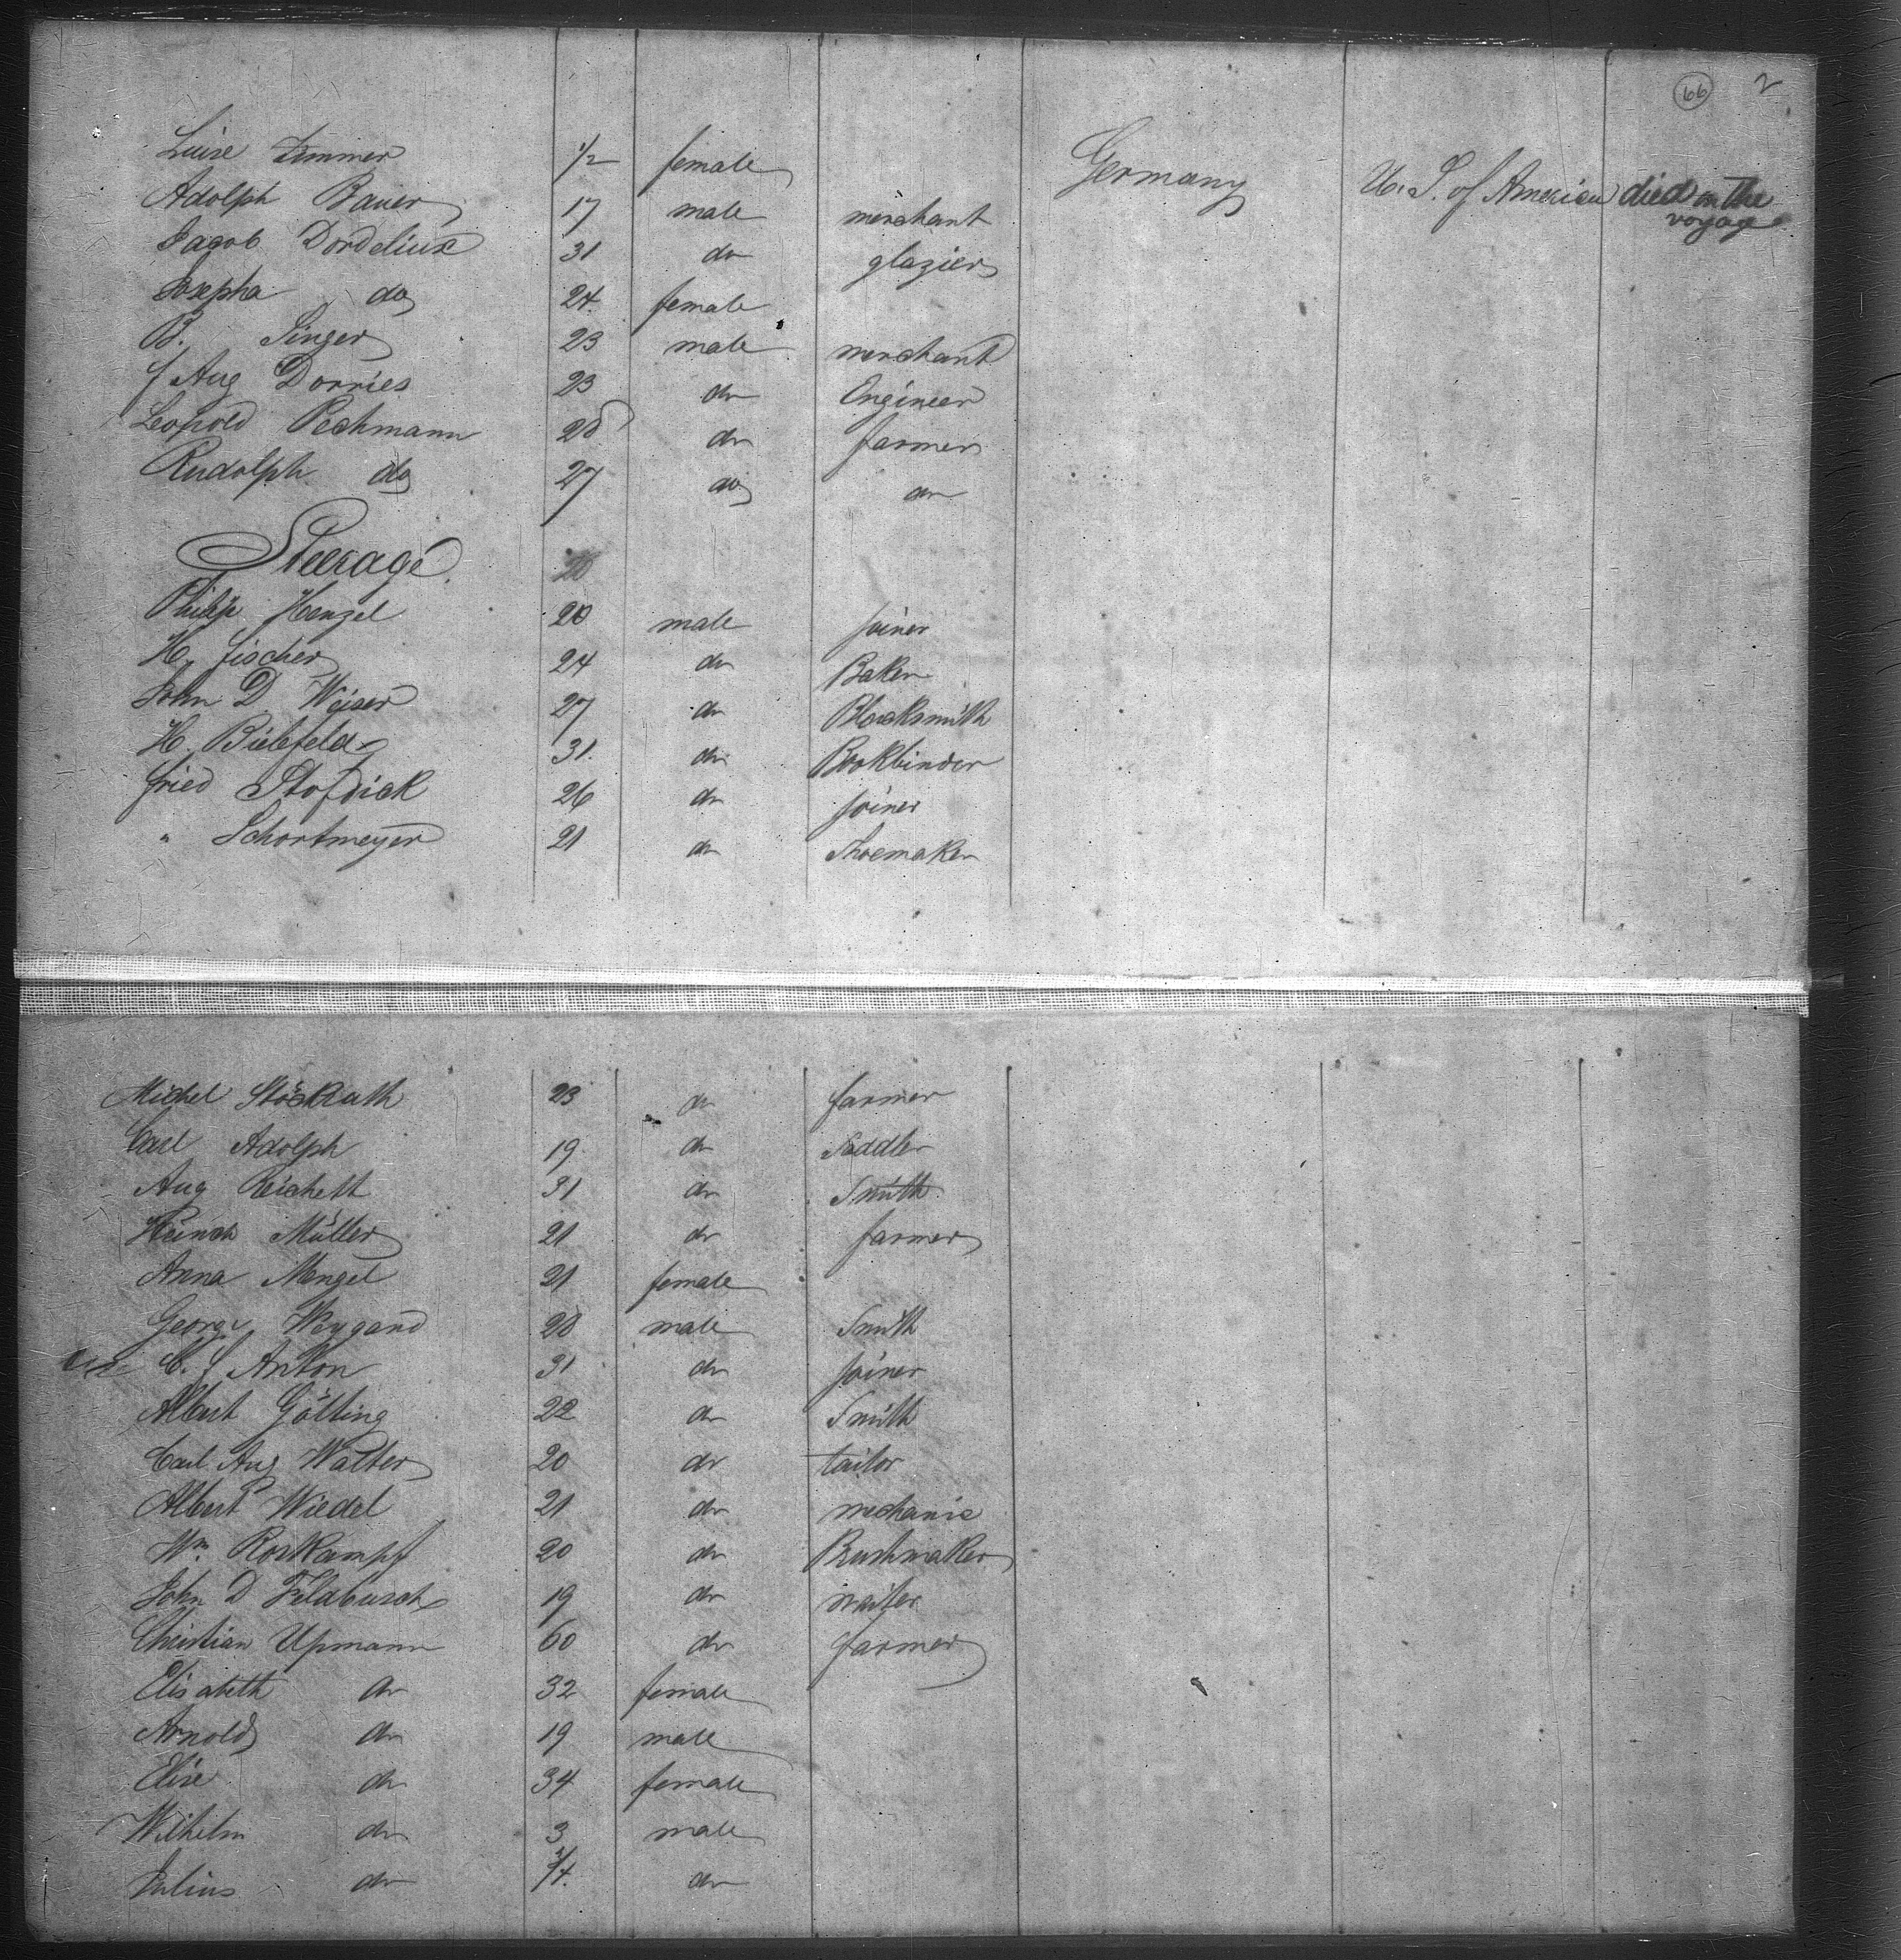 66 2
Luise Zimmer 1/2 female Germany U. S. of America died on the voyage
Adolph Bauer 17 male merchant
Jacob Dordelius 31 do glazier
Josepha do 24 female
B. Singer 23 male merchant
J Aug Dorries 23 do Engineer
Leopold Pechmann 28 do farmer
Rudolph do 27 do do
Steerage.
Philip Henzel 20 male joiner
H. Fischer 24 do Baker
John D. Weiser 27 do Blacksmith
H. Bielefeld 31. do Bookbinder
Fried Stofdick 26 do joiner
" Schortmeyer 21 do Shoemaker
Michel Stöckrath 23 do farmer
Carl Adolph 19 do Saddler
Aug Reichelt 31 do Smith
Heinrich Müller 21 do farmer
Anna Mengel 21 female
George Weygand 28 male Smith
C. F Anton 31 do joiner
Albert Gölting 22 do Smith
Carl Aug Walter 20 do tailor
Albert Wiedel 21 do mechanic
Wm. Roskampf 20 do Brushmaker
John D Feldbusch 19 do waiter
Christian Upmann 60 do farmer
Elisabeth do 32 female
Arnold do 19 male
Elise do 34 female
Wilhelm do 3 male
Julius do 3/4. do